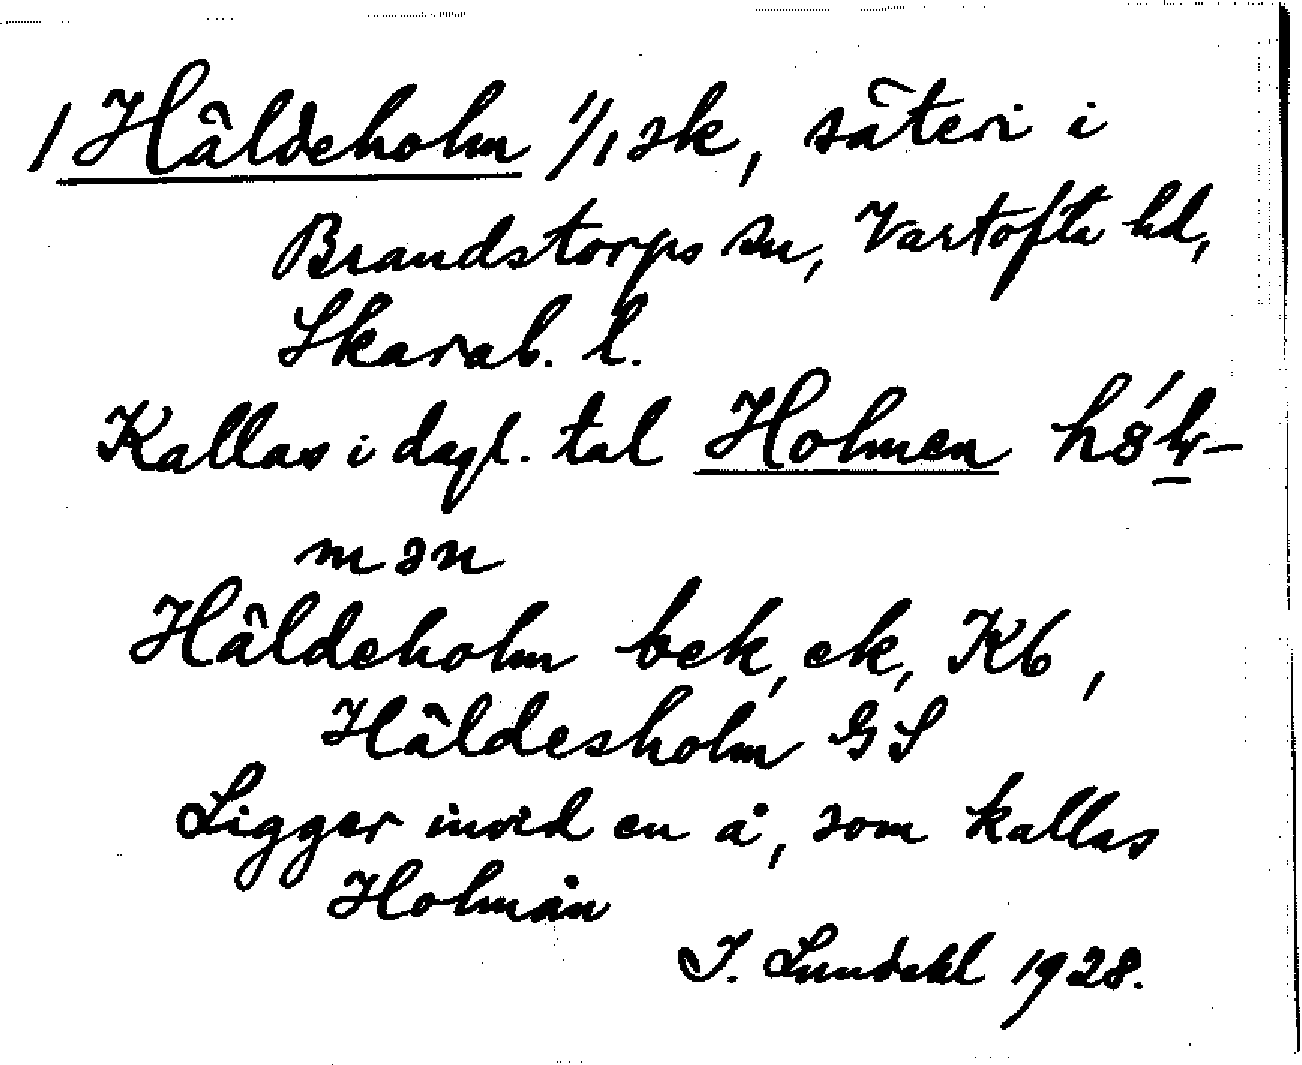 1 Häldeholm 1/1 sk, säteri i
Brandstorps sn, Vartofta hd,
Skarab. l.
Kallas i dagl. tal Holmen
mən
Häldeholm bek, ek, Kb,
Häldesholm GS
Ligger invid en å, som kallas
Holmån
I. Lundahl 1928.